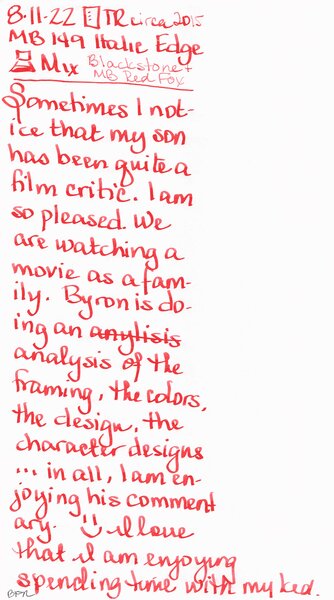 8.11.22 TR circa 2015
MB 149 Italic Edge
Mix Blackstone +
MB Red Fox
Sometimes I not-
ice that my son
has been quite a
film critic. I am
so pleased. We
are watching a
movie as a fam-
ily. Byron is do-
ing an anylisis
analysis of the
framing, the colors,
the design, the
character designs
... in all, I am en-
joying his comment
ary. I love
that I am enjoying
spending time with my kid.